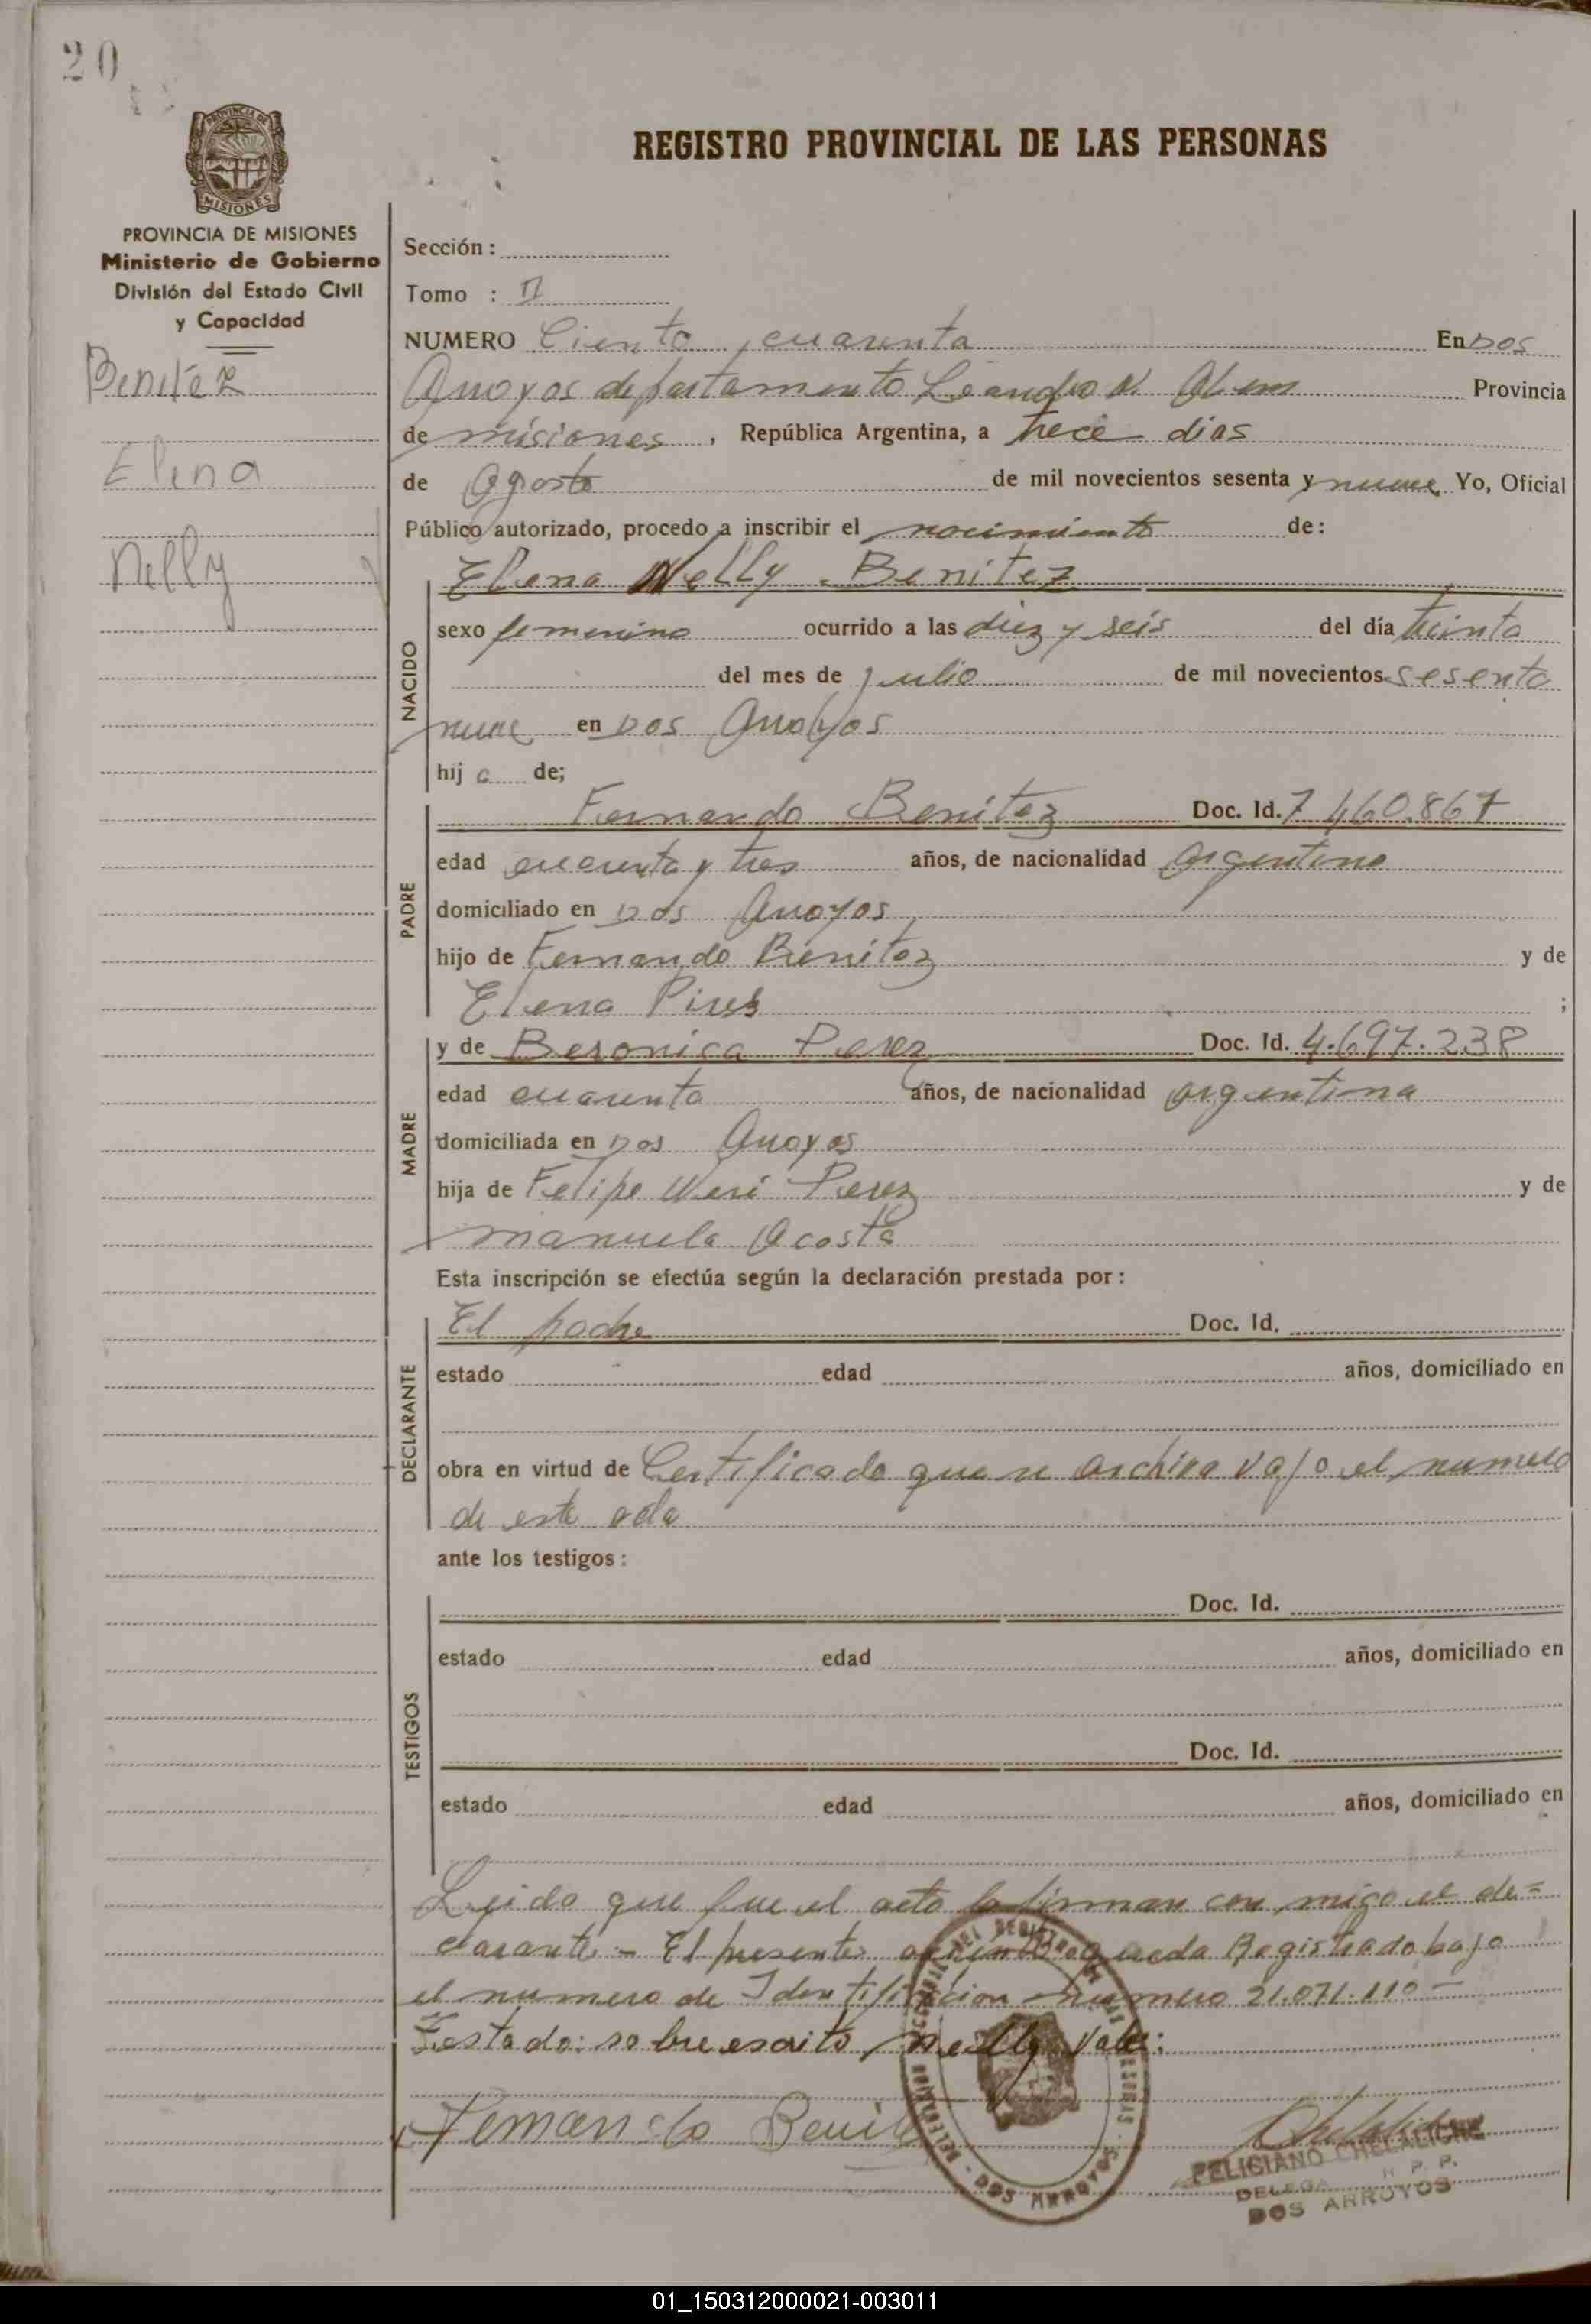 20
PROVINCIA DE
MISIONES
REGISTRO PROVINCIAL DE LAS PERSONAS
PROVINCIA DE MISIONES
Ministerio de Gobierno
División del Estado Civil
y Capacidad
Benitez
Elena
Nelly
Sección :
Tomo : II
NUMERO Ciento cuarenta En Dos
Arroyos departamento Leandro N. Alem Provincia
de misiones , República Argentina, a trece dias
de Agosto de mil novecientos sesenta y nueve Yo, Oficial
Público autorizado, procedo a inscribir el nacimiento de:
NACIDO
Elena Nelly Benitez
sexo femenino ocurrido a las diez y seis del día treinta
del mes de julio de mil novecientos sesenta
nueve en Dos Arroyos
hij a de;
PADRE
Fernando Benitez Doc. Id. 7.460.867
edad cuarenta y tres años, de nacionalidad argentino
domiciliado en Dos Arroyos
hijo de Fernando Benitez y de
Elena Pires ;
MADRE
y de Beronica Perez Doc. Id. 4.697.238
edad cuarenta años, de nacionalidad argentina
domiciliada en Dos Arroyos
hija de Felipe Perez y de
manuela Acosta
Esta inscripción se efectúa según la declaración prestada por :
DECLARANTE
El padre Doc. Id.
estado edad años, domiciliado en
obra en virtud de Certificado que se archiva vajo el numero
de este acta
ante los testigos :
TESTIGOS
Doc. Id.
estado edad años, domiciliado en
Doc. Id.
estado edad años, domiciliado en
Leido que fue el acta la firman con migo el de=
clarante - El presente queda Registrado bajo
el numero de Identificacion numero 21.071.110 -
Testado: sobre escrito Nelly Vale:
Fernando Benitez
DOS ARROYOS
FELICIANO CHELALICHE
DELEGA R. P. P.
DOS ARROYOS
01_150312000021-003011